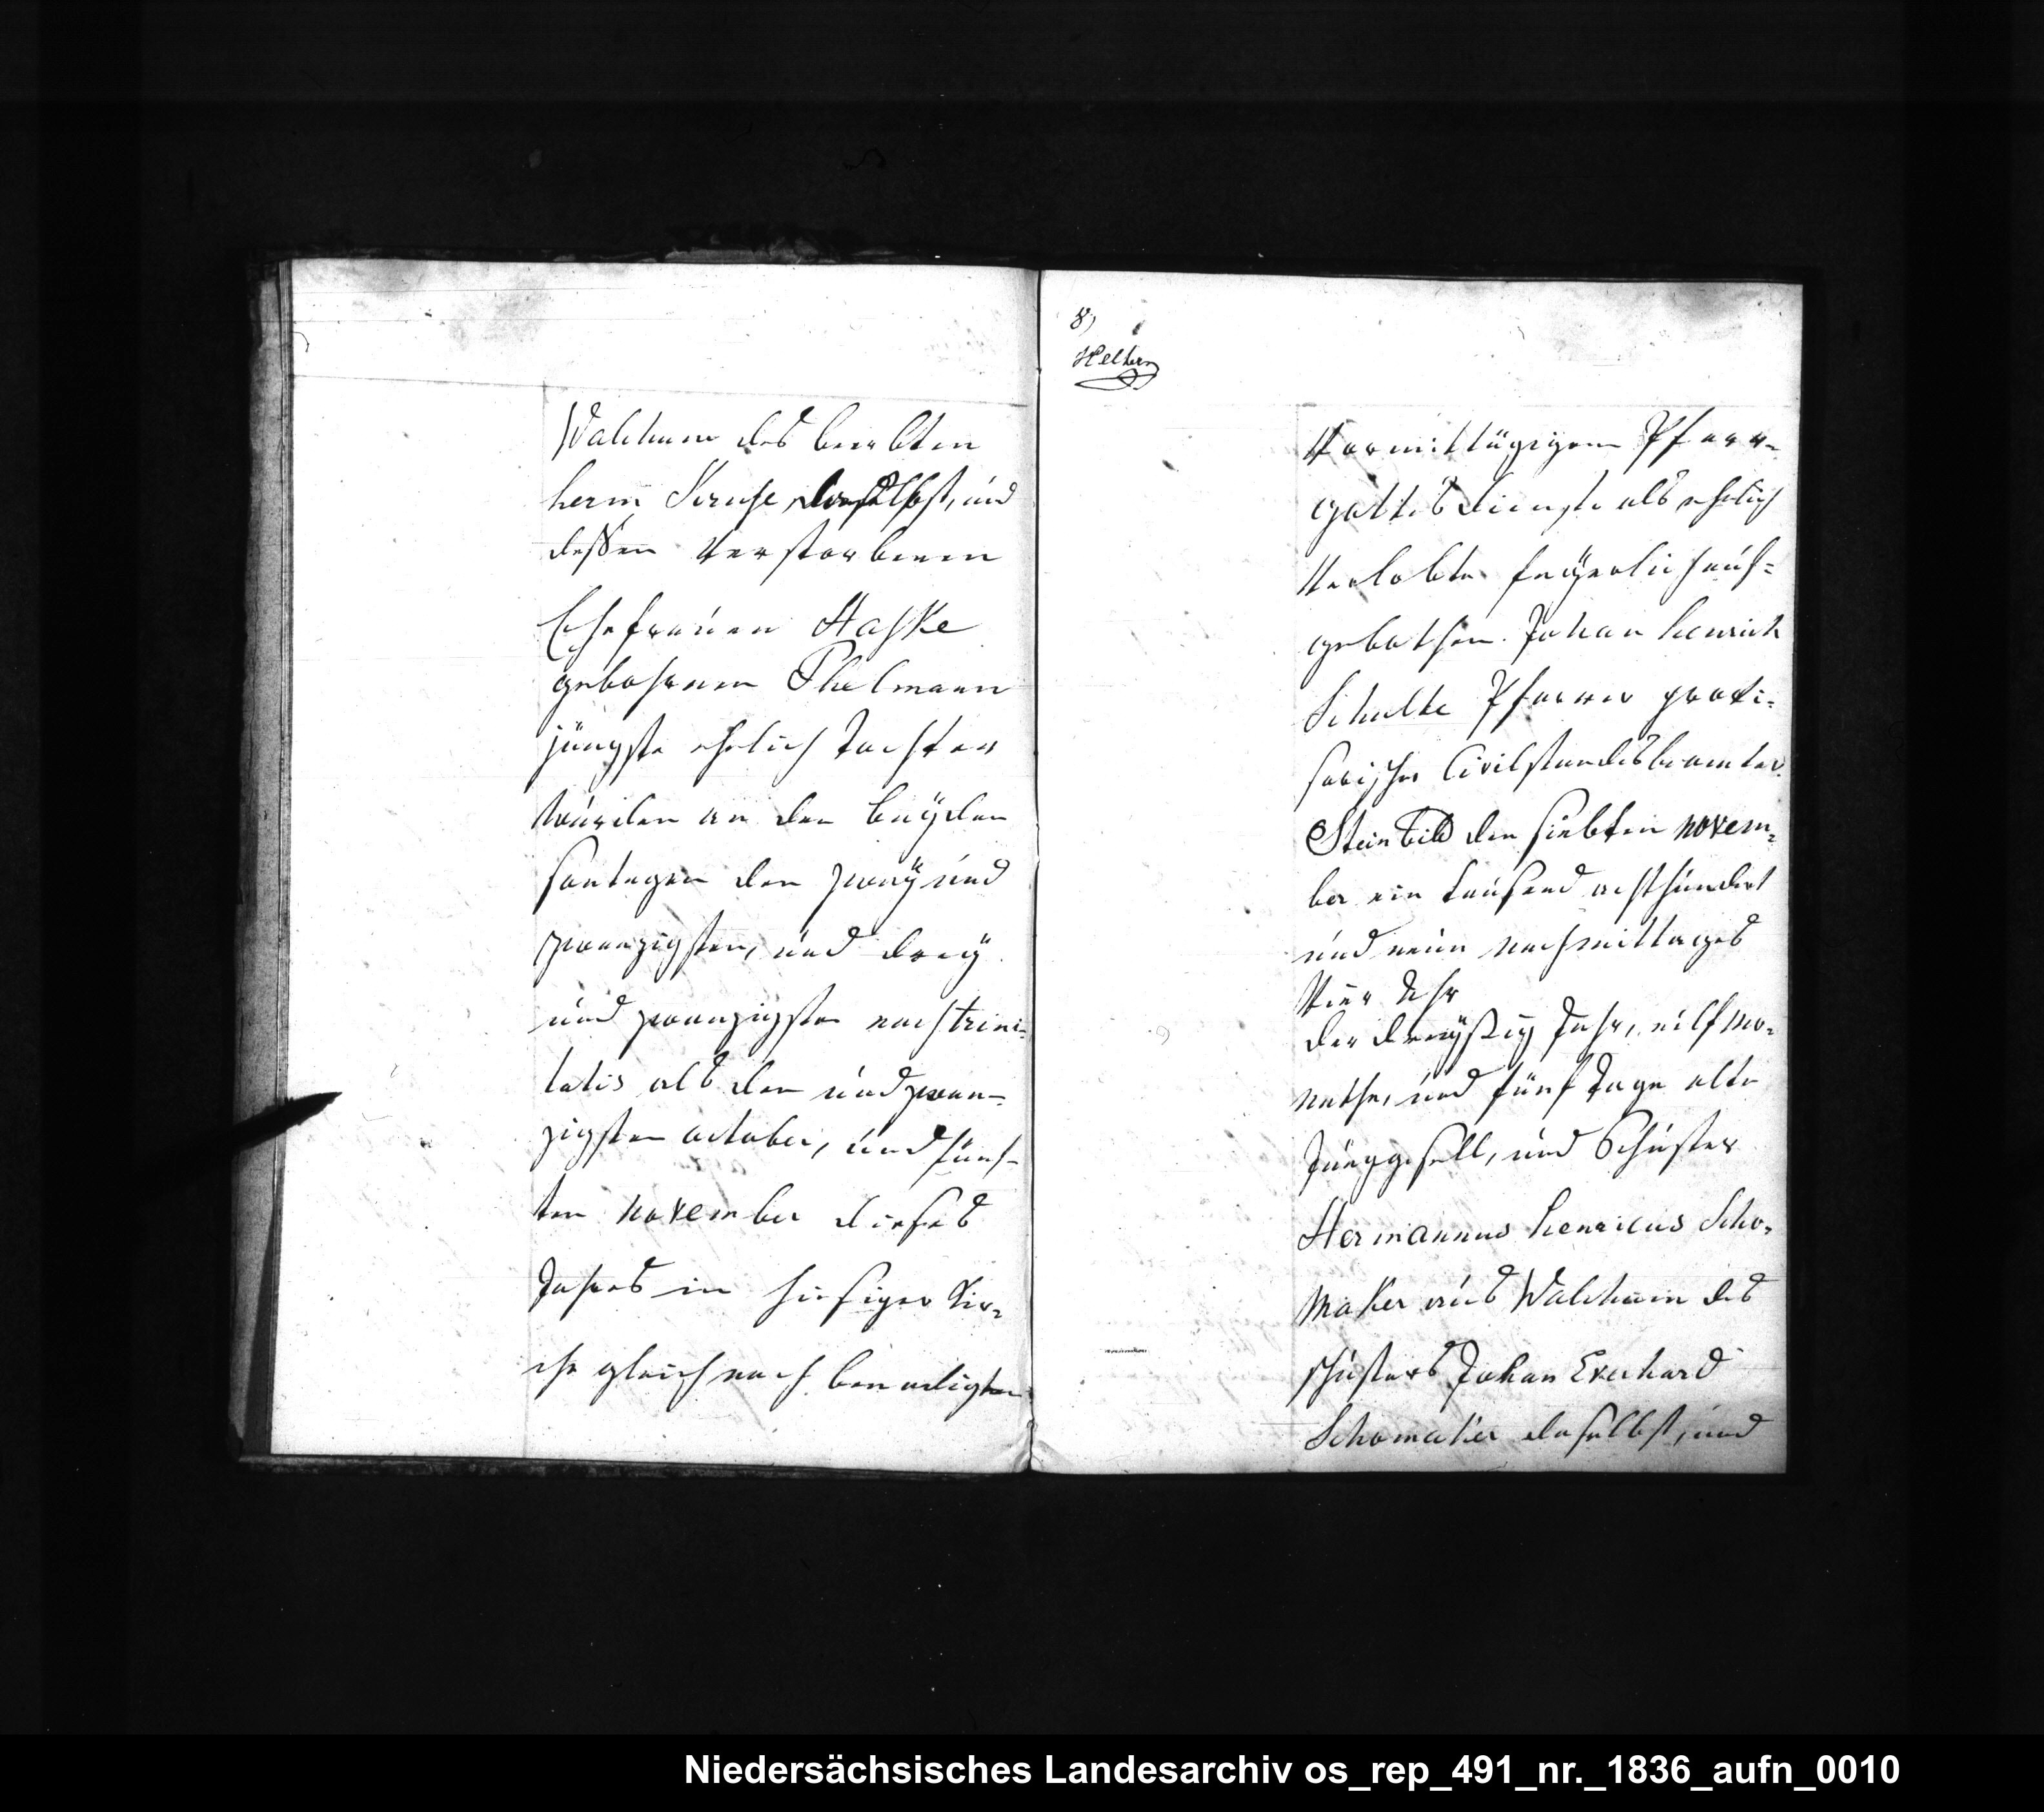 Walchum des beerbten
herm Kruse daselbst, und
dessen verstorbenen
Ehefrauen Haske
gebohrnen Thelmann
jüngste ehelich Tochter
wurden an den beÿden
sontagen den zweÿ und
zwanzigsten, und dreÿ
und zwanzigsten nach trini-
tatis als den und zwan-
zigsten october, und fünf-
ten november dieses
Jahres in hiesiger Kir-
che gleich nach beendigten
8)
vormittägigem Pfarr-
gottesdienste als ehelich
verlobte feÿerlich auf-
gebothen. Johan henrich
Schulte Pfarrer provi-
sorischer Civilstandesbeamter
Steinbild den siebten novem-
ber ein tausend achthundert
und neun nachmittages
vier Uhr
der dreÿßig Jahr, eilf mo-
nathe, und fünf Tage alte
Junggesell, und Schuster
Hermannus henricus Scho-
maker aus Walchum des
schusters Johan Everhard
Schomaker daselbst, und
Niedersächsisches Landesarchiv os_rep_491_nr._1836_aufn_0010